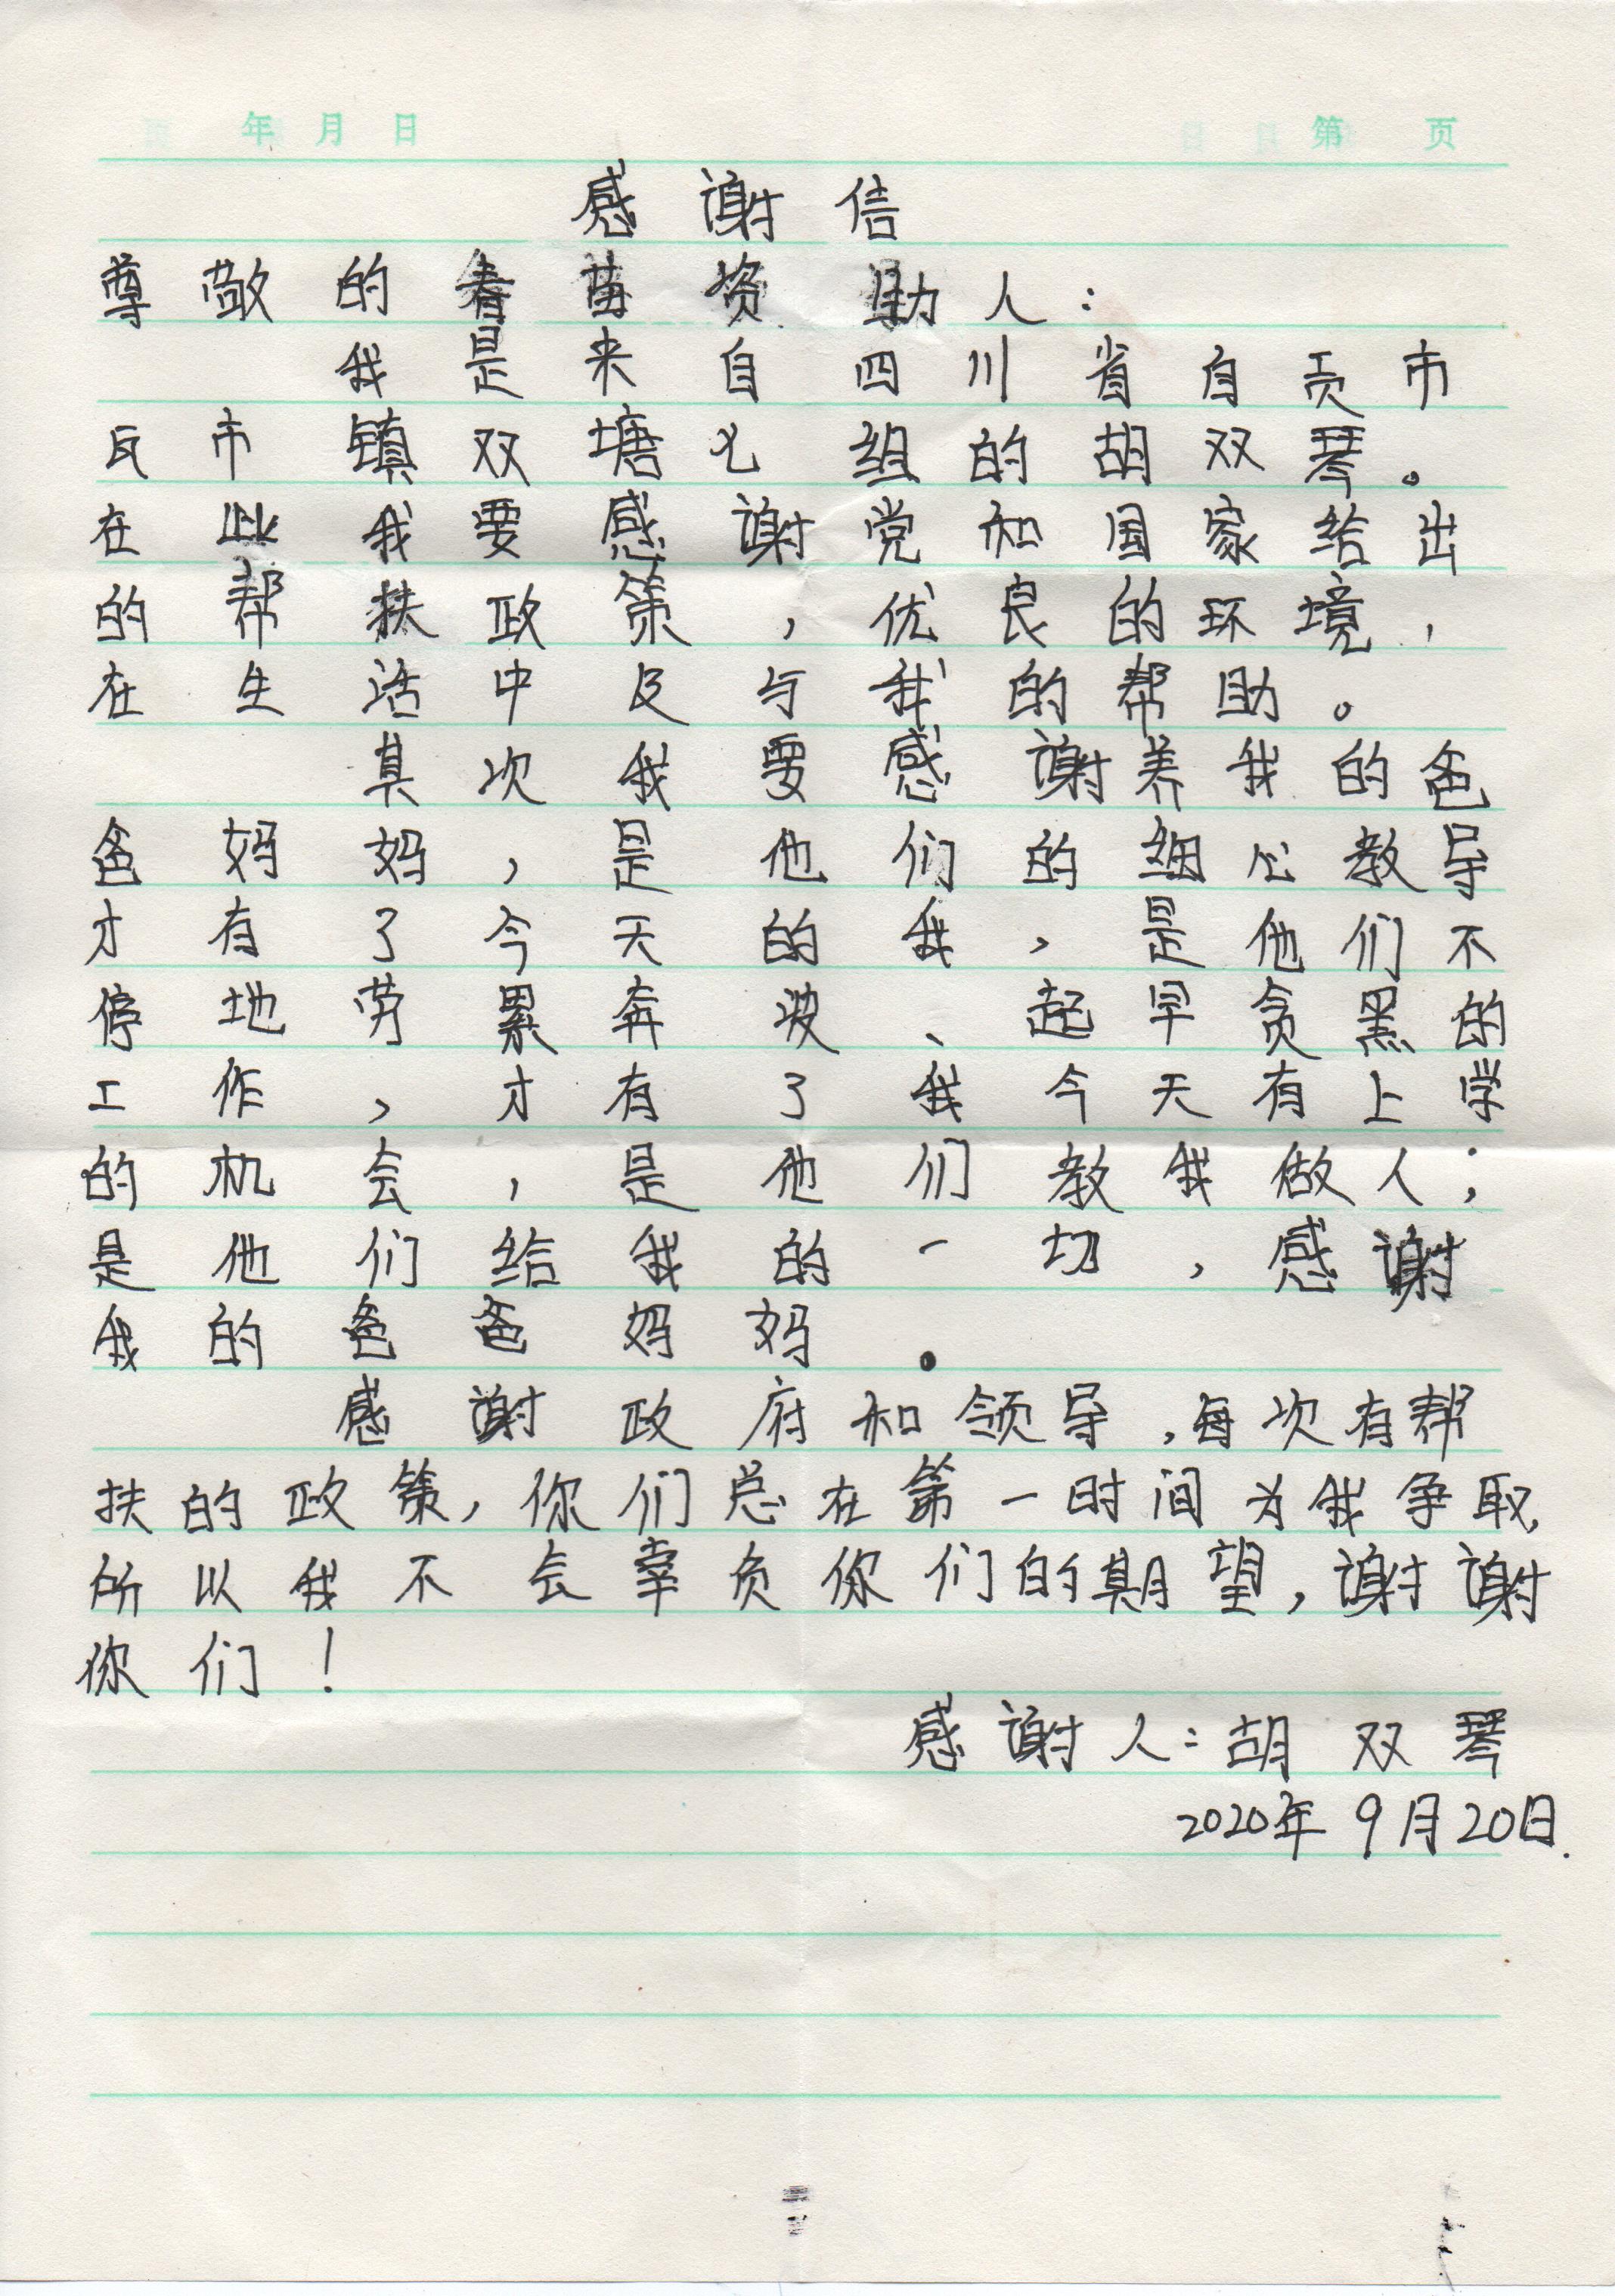 年 月 日 第 页
感谢信
尊敬的春苗资助人：
我是来自四川省自贡市
瓦市镇双塘七组的胡双琴。
在此我要感谢党和国家给出
的帮扶政策，优良的环境，
在生活中及与我的帮助。
其次我要感谢养我的爸
爸妈妈，是他们的细心教导
才有了今天的我，是他们不
停地劳累奔波、起早贪黑的
工作，才有了我今天有上学
的机会，是他们教我做人；
是他们给我的一切，感谢
我的爸爸妈妈。
感谢政府和领导，每次有帮
扶的政策，你们总在第一时间为我争取，
所以我不会辜负你们的期望，谢谢
你们！
感谢人：胡双琴
2020年9月20日.